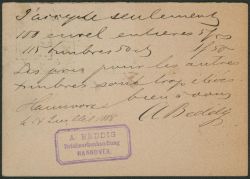 J'accepte seulement
100 envel entieres 5/50
115 timbres dont 1/50
Les prix pour les autres
timbres sont trop élevés
Hannovre bien à vous
le Juillet 188
A. BEDDIG
Briefmarkenhandlung
HANNOVER.